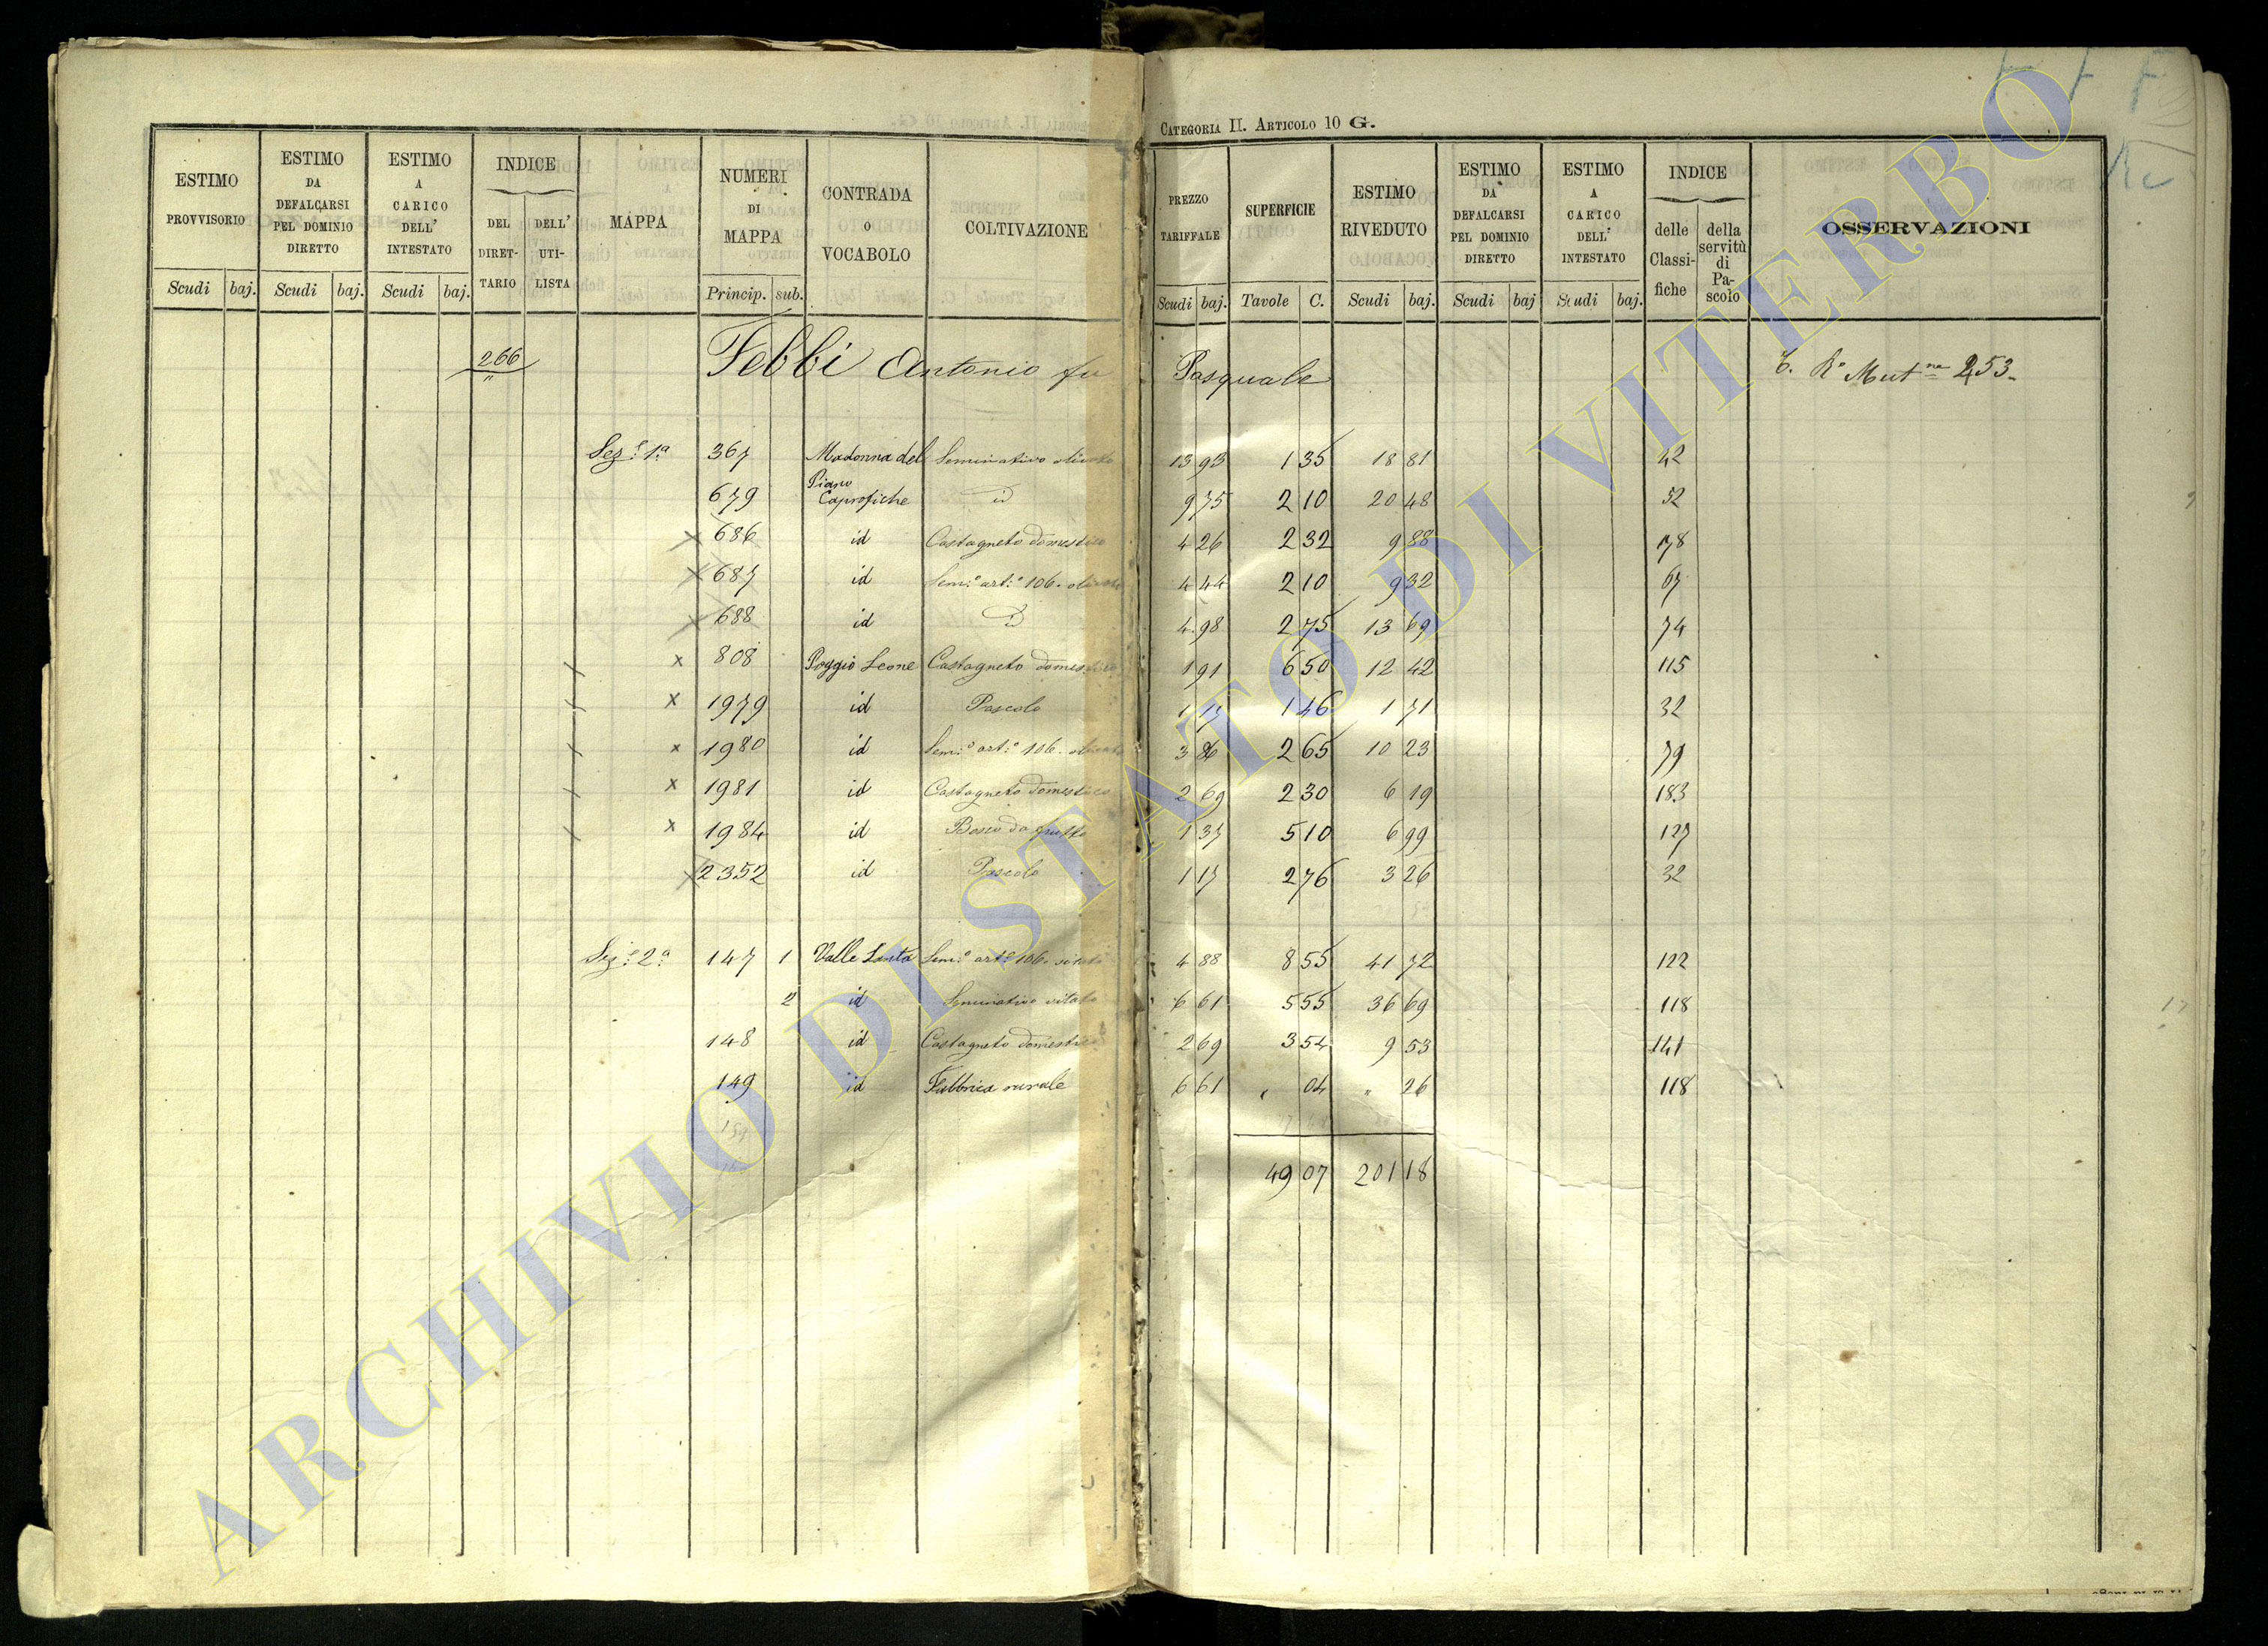 CATEGORIA II. ARTICOLO 10 G.
ESTIMO PROVVISORIO Scudi baj.
ESTIMO DA DEFALCARSI PEL DOMINIO DIRETTO Scudi baj.
ESTIMO A CARICO DELL' INTESTATO Scudi baj.
INDICE DEL DIRET-TARIO DELL' UTI-LISTA
MAPPA
NUMERI DI MAPPA Princip. sub.
CONTRADA O VOCABOLO
COLTIVAZIONE
PREZZO TARIFFALE Scudi baj.
SUPERFICIE Tavole C.
ESTIMO RIVEDUTO Scudi baj.
ESTIMO DA DEFALCARSI PEL DOMINIO DIRETTO Scudi baj
ESTIMO A CARICO DELL' INTESTATO Scudi baj.
INDICE delle Classi-fiche della servitù di Pa-scolo
OSSERVAZIONI
266 Febbi Antonio fu Pasquale Mut.ne 253
Sez.e 1.a 367 Madonna del Piano Seminativo olivato 13 93 1 35 18 81 42
679 Caprofiche id 9 75 2 10 20 48 52
686 id Castagneto domestico 4 26 2 32 9 88 78
687 id Sem.o art.o 106. olivato 4 44 2 10 9 32 67
688 id D 4 98 2 75 13 69 74
808 Poggio Leone Castagneto domestico 1 91 6 50 12 42 115
1979 id Pascolo 1 17 1 46 1 71 32
1980 id Sem.o art.o 106. olivato 3 86 2 65 10 23 79
1981 id Castagneto domestico 2 69 2 30 6 19 183
1984 id Bosco da frutto 1 37 5 10 6 99 127
2352 id Pascolo 1 17 2 76 3 26 32
Sez.e 2.a 147 1 Valle Sem.o art.o 106. vitato 4 88 8 55 41 72 122
2 id Seminativo vitato 6 61 5 55 36 69 118
148 id Castagneto domestico 2 69 3 54 9 53 141
149 id Fabbrica rurale 6 61 " 04 " 26 118
49 07 201 18
ARCHIVIO DI STATO DI VITERBO